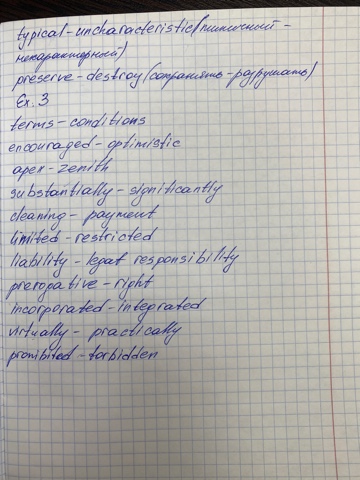 typical-uncharacteristic(типичний -
нехарактерный)
preserve-destroy(сохранять-разрушать)
Ex. 3
terms-conditions
encouraged-optimistic
apex-zenith
substantially-significantly
cleaning-payment
limited-restricted
liability-legat responsibility
prerogative-right
incorporated-integrated
virtually-practically
prohibited-forbidden